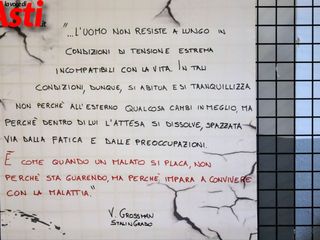 la voce di
Asti.it
"...L'UOMO NON RESISTE A LUNGO IN
CONDIZIONI DI TENSIONE ESTREMA
INCOMPATIBILI CON LA VITA. IN TALI
CONDIZIONI, DUNQUE, SI ABITUA E SI TRANQUILLIZZA
NON PERCHÈ ALL'ESTERNO QUALCOSA CAMBI IN MEGLIO, MA
PERCHÈ DENTRO DI LUI L'ATTESA SI DISSOLVE, SPAZZATA
VIA DALLA FATICA E DALLE PREOCCUPAZIONI.
È COME QUANDO UN MALATO SI PLACA, NON
PERCHÈ STA GUARENDO, MA PERCHÈ IMPARA A CONVIVERE
CON LA MALATTIA."
V. GROSSMAN
STALINGRADO